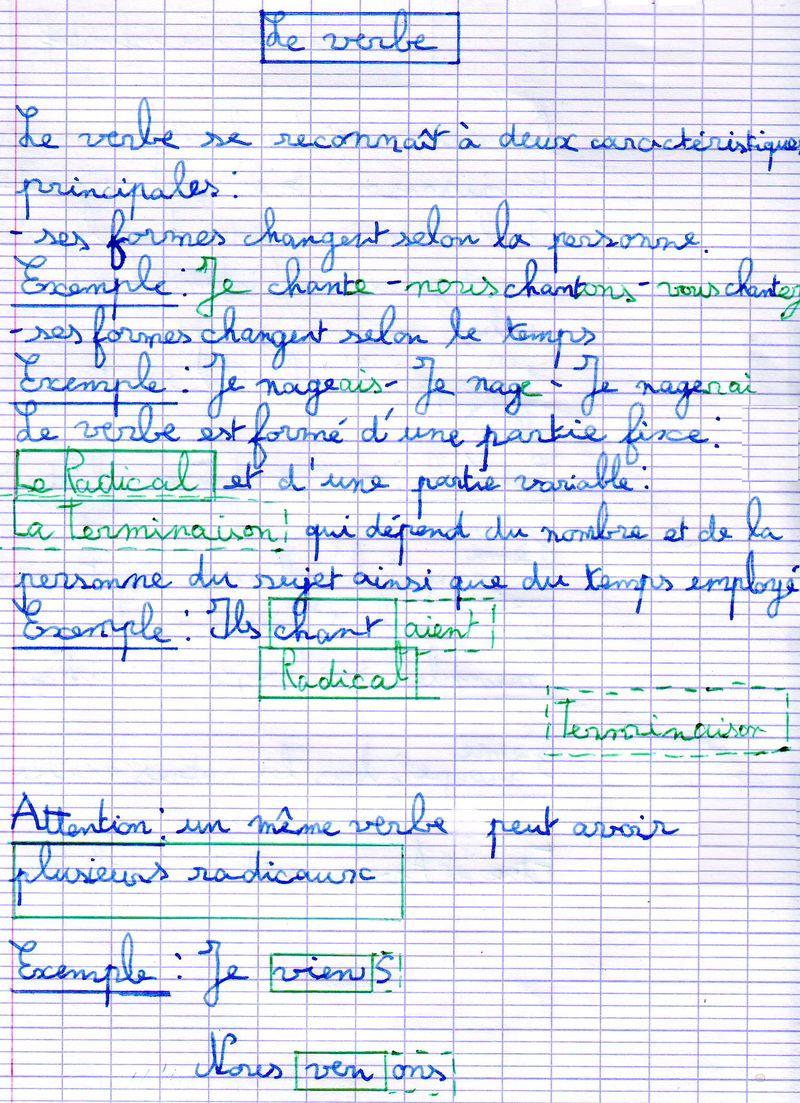 Le verbe
Le verbe se reconnaît à deux caractéristiques
principales :
- ses formes changent selon la personne.
Exemple : Je chante - nous chantons - vous chantez
- ses formes changent selon le temps
Exemple : Je nageais - Je nage - Je nagerai
Le verbe est formé d'une partie fixe :
Le Radical et d'une partie variable :
La Terminaison qui dépend du nombre et de la
personne du sujet ainsi que du temps employé
Exemple : Ils chantaient
Radical
Terminaison
Attention : un même verbe peut avoir
plusieurs radicaux
Exemple : Je viens
Nous venons